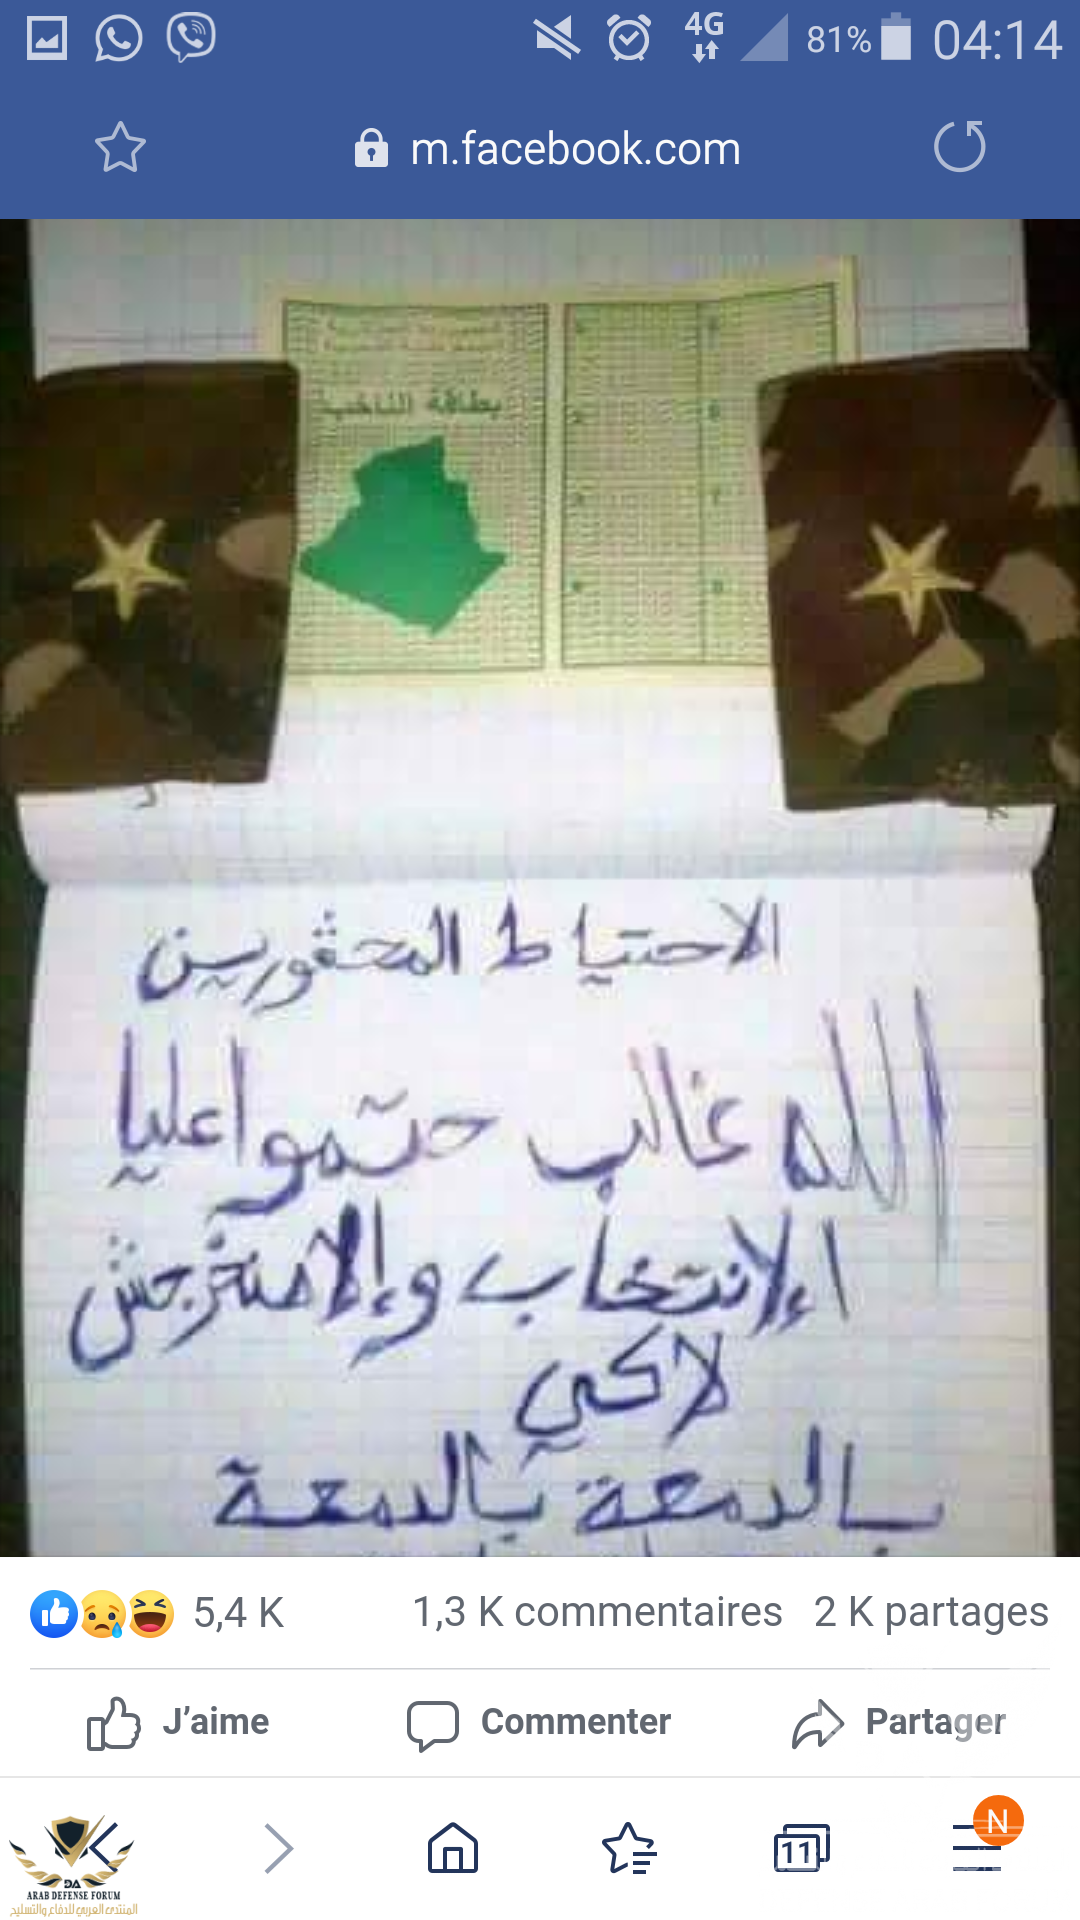 4G
81%
04:14
m.facebook.com
بطاقة الناخب
الاحتياط المحقورين
الله غالب حتموا عليا
الإنتخاب وإلا منخرجش
لاكي
بالدمعة بالدمعة
5,4 K
1,3 K commentaires
2 K partages
J’aime
Commenter
Partager
11
N
DA
ARAB DEFENSE FORUM
المنتدى العربي للدفاع والتسليح